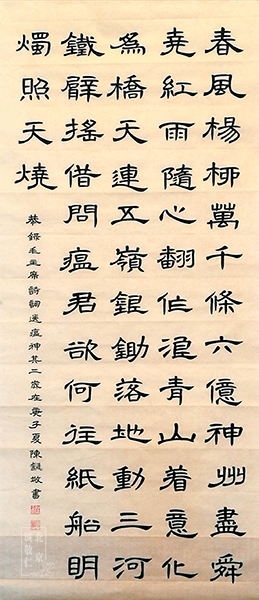 春風楊柳萬千條六億神州盡舜
堯紅雨隨心翻作浪青山着意化
爲橋天連五嶺銀鋤落地動三河
鐵臂搖借問瘟君欲何往紙船明
燭照天燒
恭録毛主席詩詞送瘟神其二歲在庚子夏陳敬書